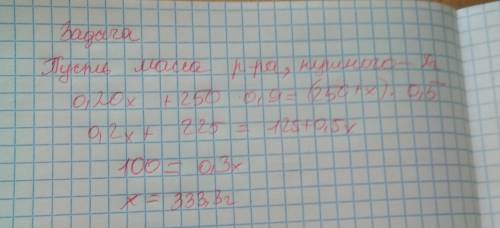 Задача
Пусть масса р-ра,
0,20x + 250 0,9 = (250+x) · 0,5
0,2x + 225 = 125+0,5x
100 = 0,3x
x = 333,3г